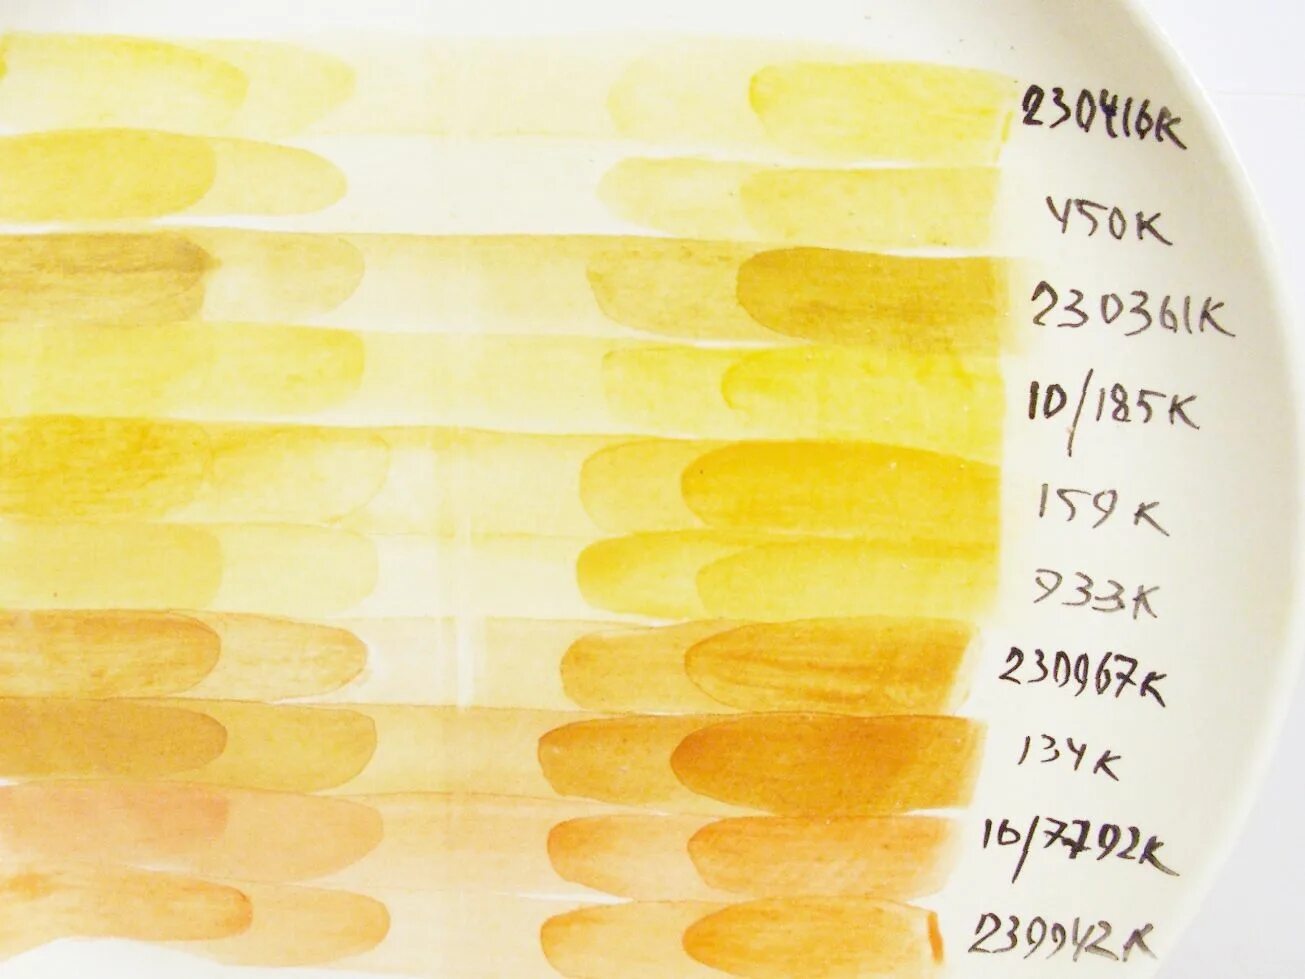 230416K
450K
230361K
10/185K
159K
933K
230967K
134K
16/7792K
239942K